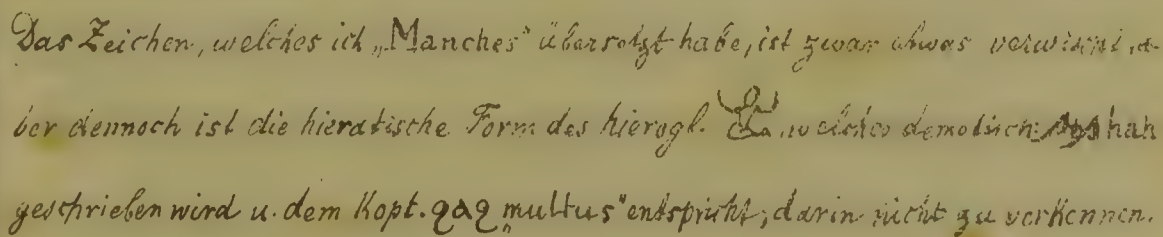 Das Zeichen, welches ich „Manches“ übersetzt habe, ist zwar etwas verwischt, a-
ber dennoch ist die hieratische Form des hierogl. 𓁨 welches demotisch hah
geschrieben wird u. dem Kopt. ϩⲁϩ „multus“ entspricht, darin nicht zu verkennen.